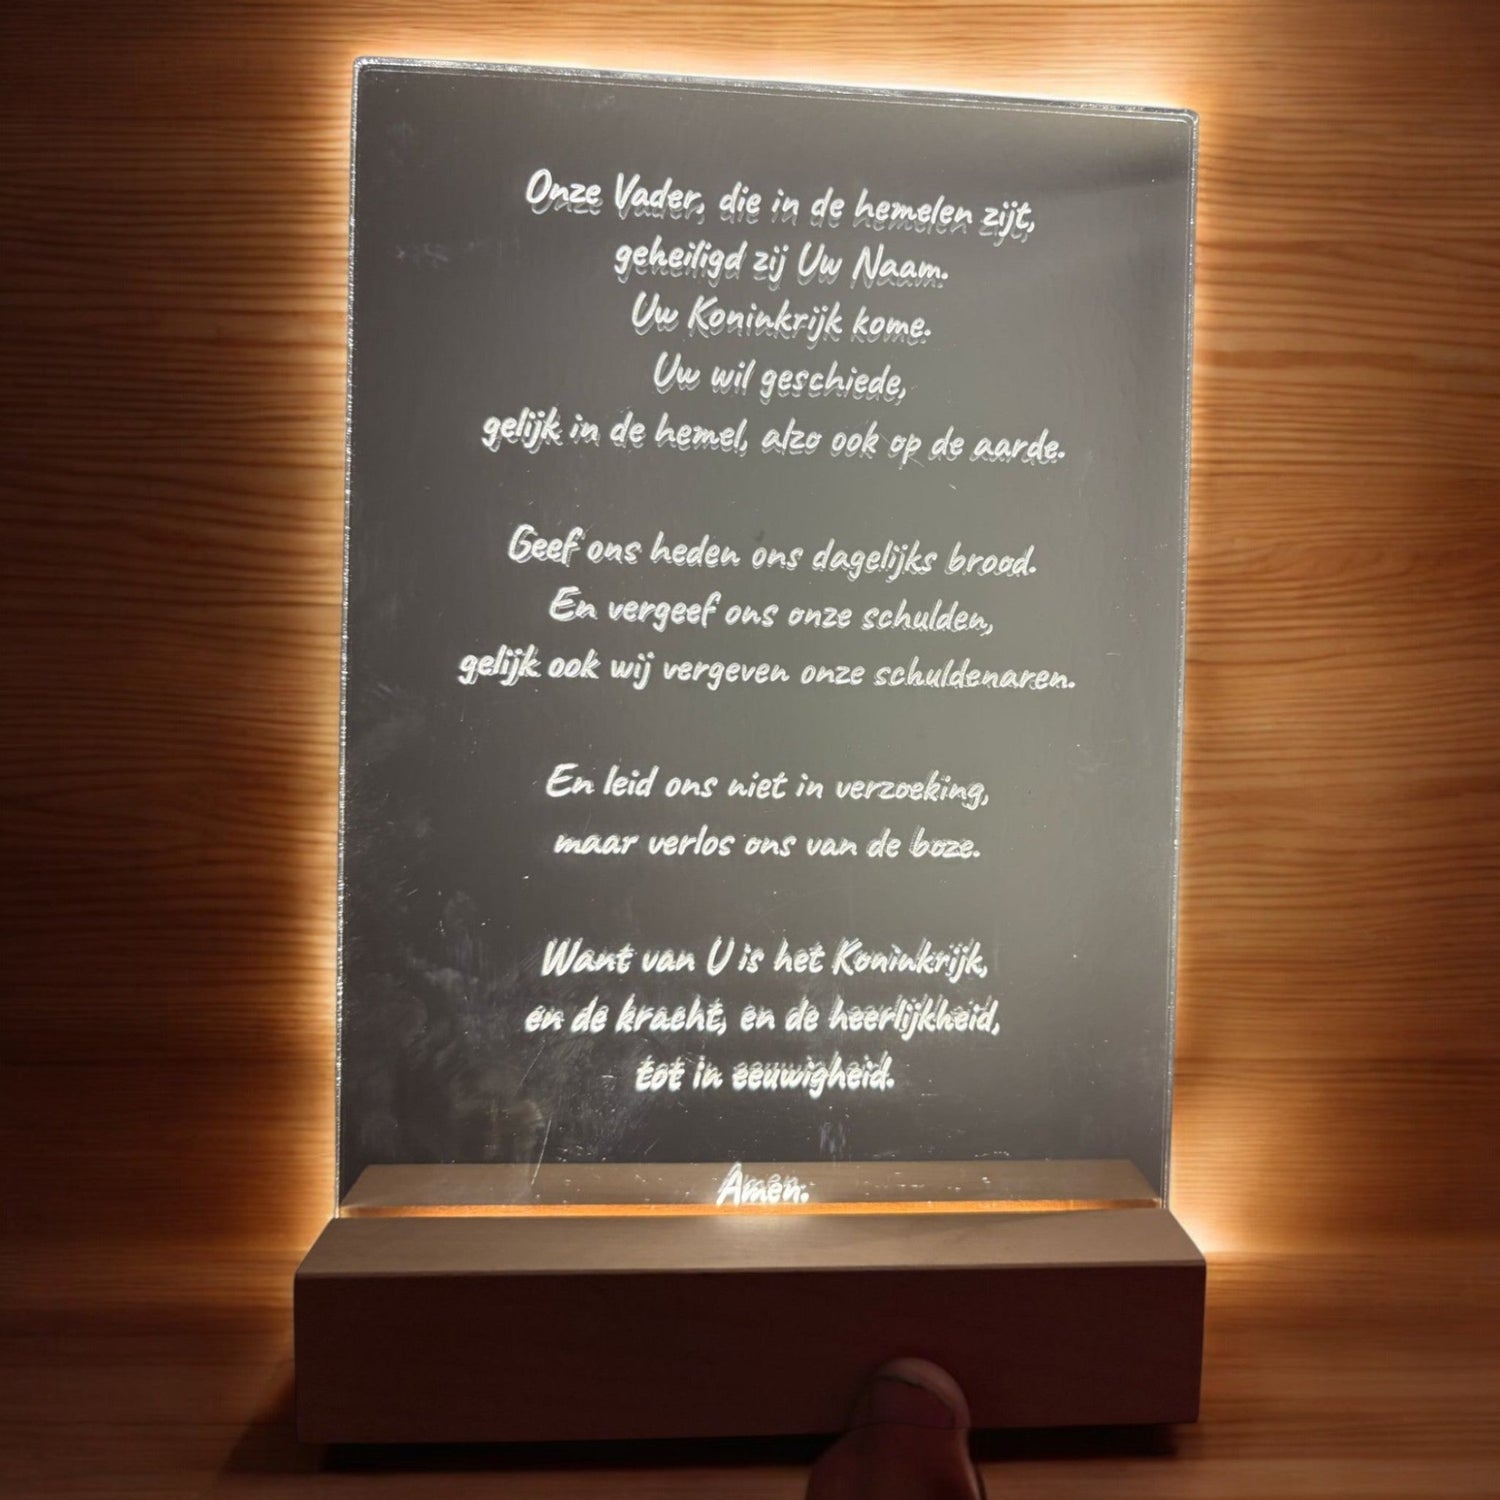 Onze Vader, die in de hemelen zijt,
geheiligd zij Uw Naam.
Uw Koninkrijk kome.
Uw wil geschiede,
gelijk in de hemel, alzo ook op de aarde.
Geef ons heden ons dagelijks brood.
En vergeef ons onze schulden,
gelijk ook wij vergeven onze schuldenaren.
En leid ons niet in verzoeking,
maar verlos ons van de boze.
Want van U is het Koninkrijk,
en de kracht, en de heerlijkheid,
tot in eeuwigheid.
Amen.